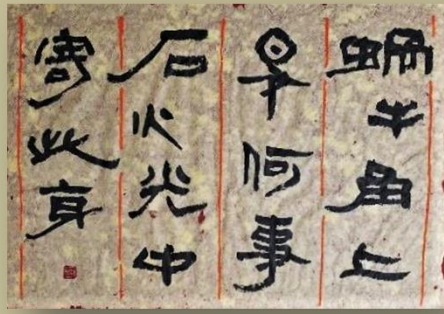 蝸牛角上
争何事
石火光中
寄此身